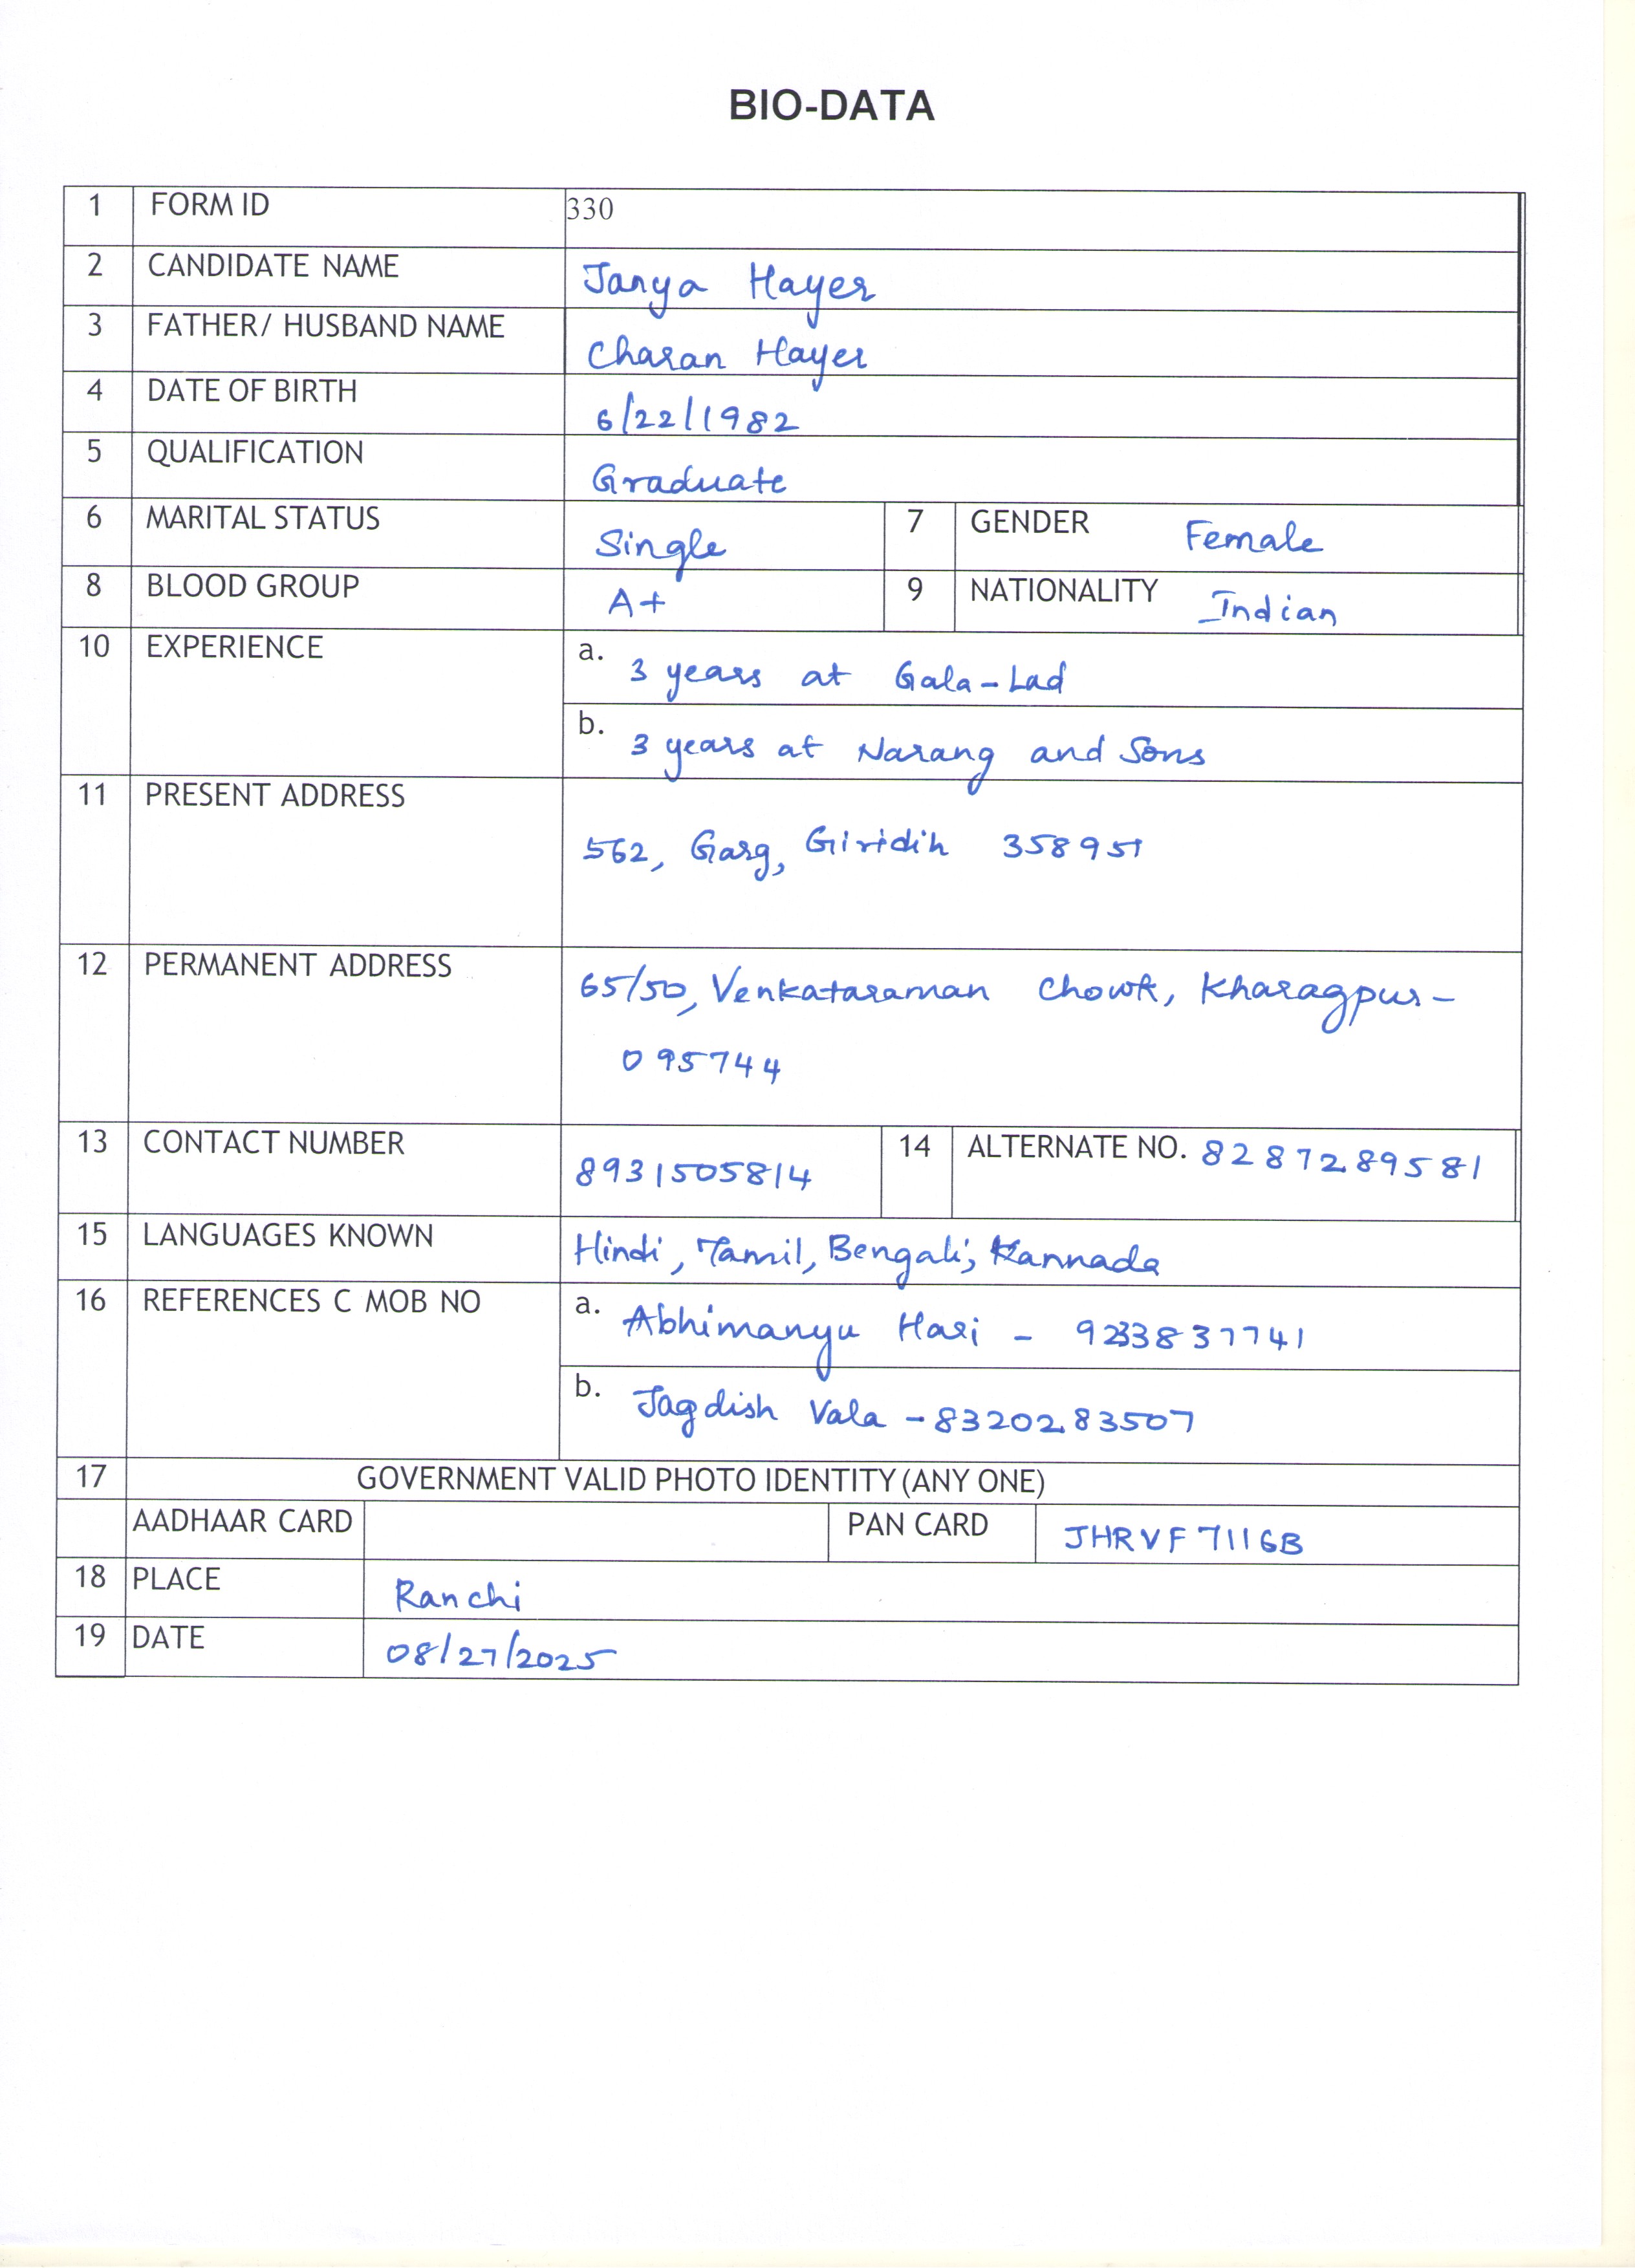 BIO-DATA
1 FORM ID 330
2 CANDIDATE NAME Janya Hayer
3 FATHER/ HUSBAND NAME Charan Hayer
4 DATE OF BIRTH 6/22/1982
5 QUALIFICATION Graduate
6 MARITAL STATUS Single 7 GENDER Female
8 BLOOD GROUP A+ 9 NATIONALITY Indian
10 EXPERIENCE a. 3 years at Gala-Lad
b. 3 years at Narang and Sons
11 PRESENT ADDRESS
562, Garg, Giridih 358951
12 PERMANENT ADDRESS 65/50, Venkataraman Chowk, Kharagpur-
095744
13 CONTACT NUMBER 8931505814 14 ALTERNATE NO. 8287289581
15 LANGUAGES KNOWN Hindi, Tamil, Bengali, Kannada
16 REFERENCES C MOB NO a. Abhimanyu Hari - 9233837741
b. Jagdish Vala - 8320283507
17 GOVERNMENT VALID PHOTO IDENTITY (ANY ONE)
AADHAAR CARD PAN CARD JHRVF7116B
18 PLACE Ranchi
19 DATE 08/27/2025